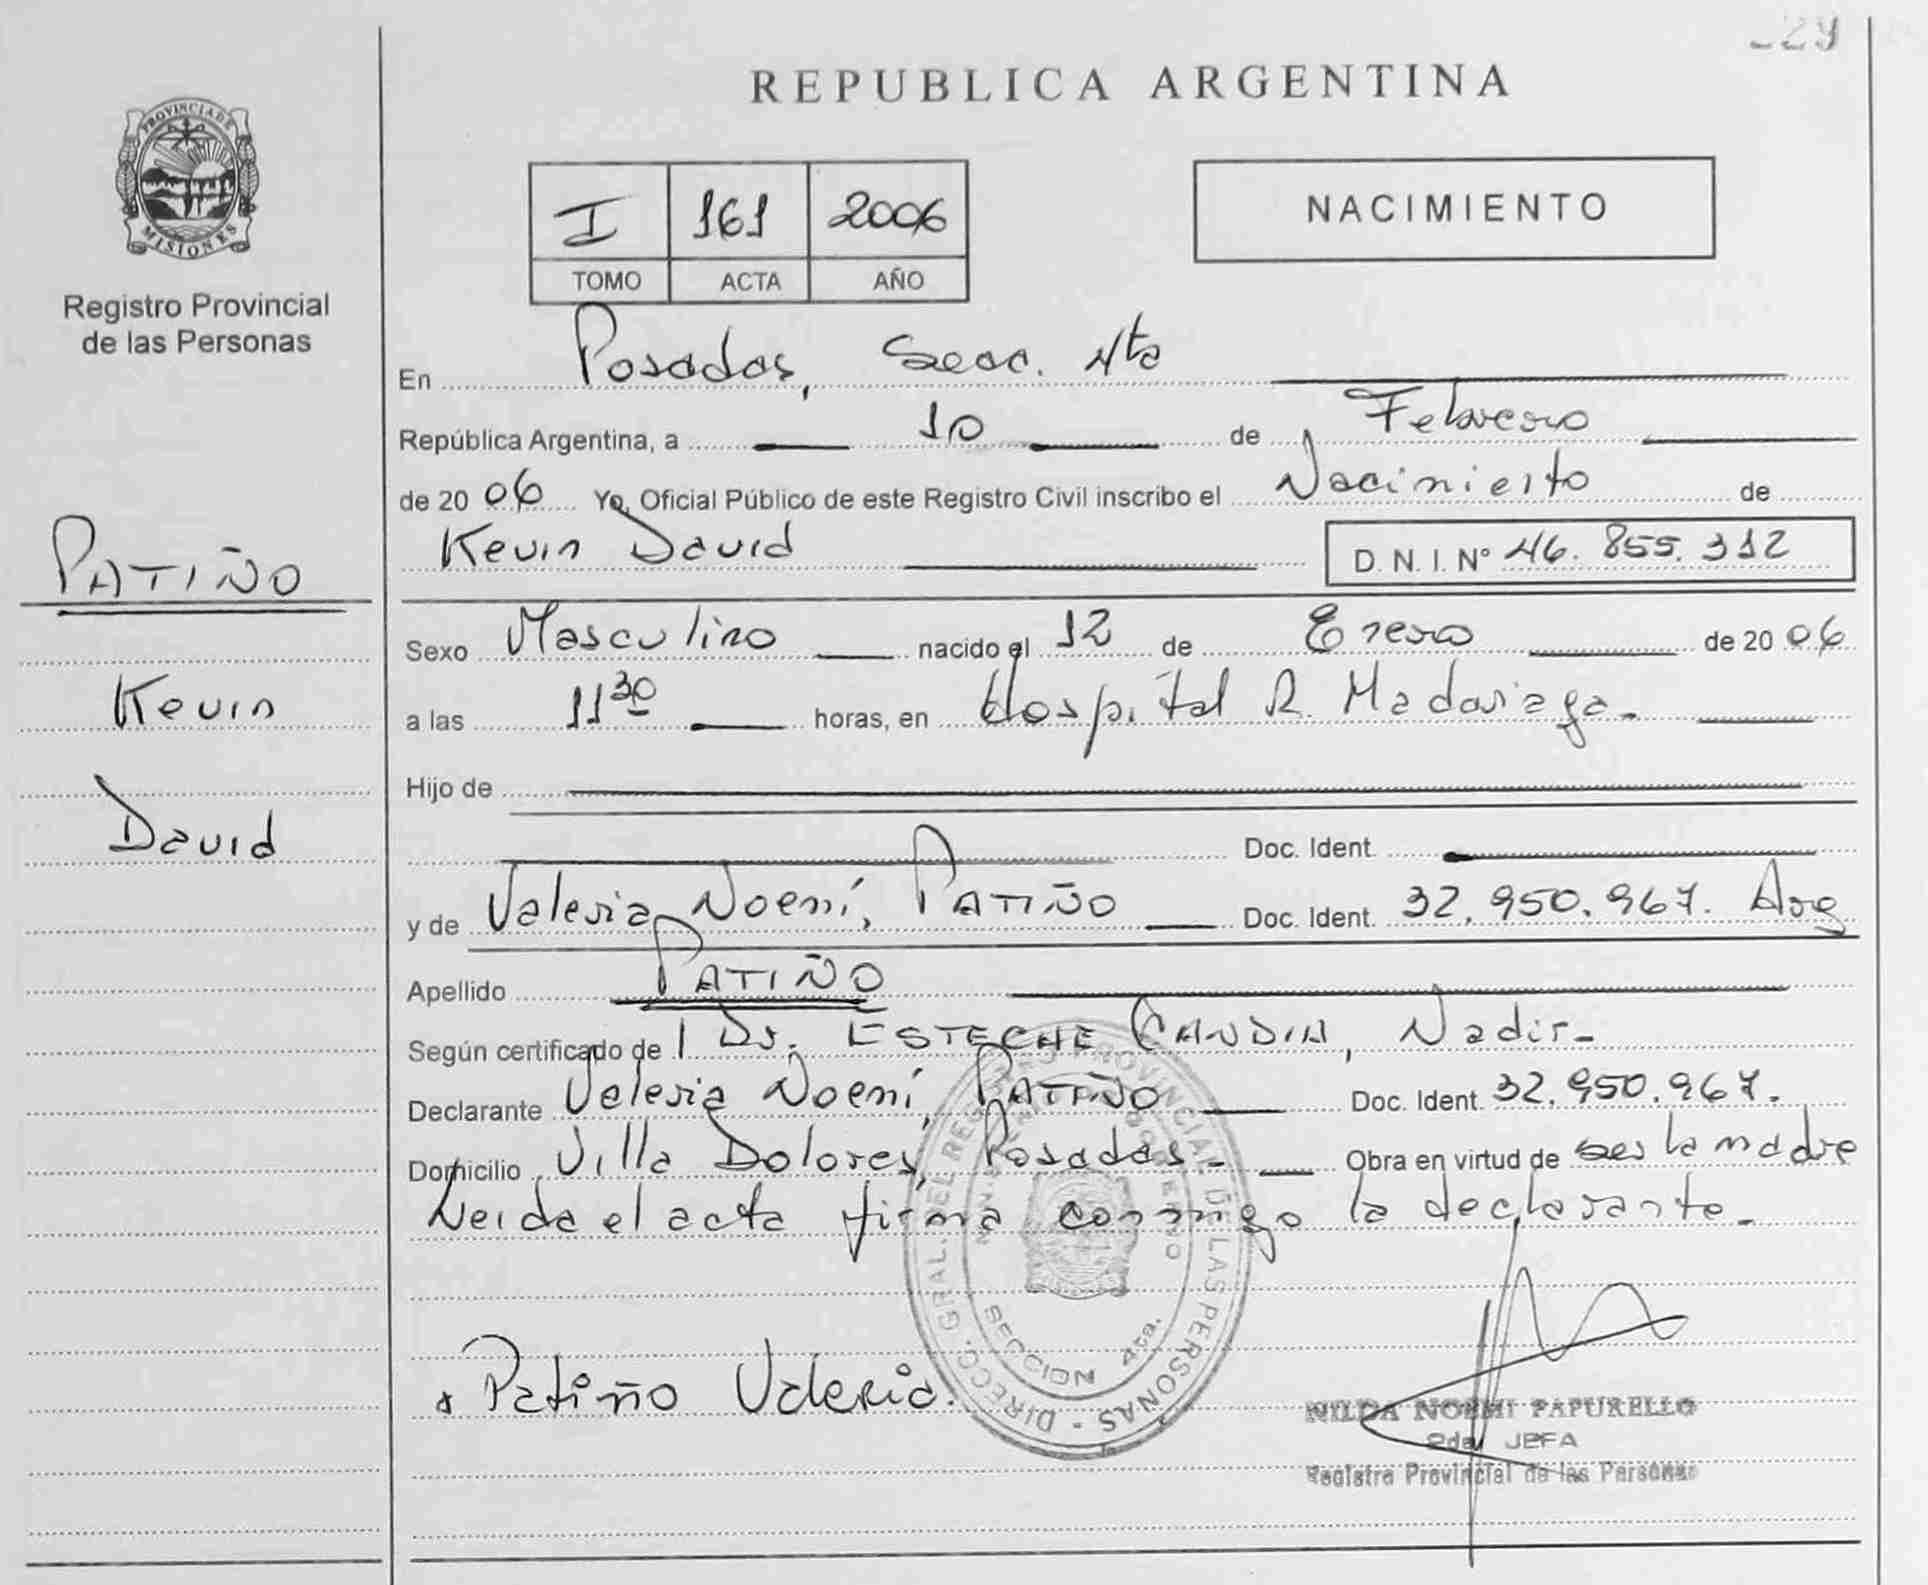 REPUBLICA ARGENTINA
PROVINCIA DE
MISIONES
Registro Provincial
de las Personas
I 161 2006
TOMO ACTA AÑO
NACIMIENTO
En Posadas, Secc. 4ta
República Argentina, a 10 de Febrero
de 2006 Yo, Oficial Público de este Registro Civil inscribo el Nacimiento de
Kevin David D. N. I. Nº 46.855.312
PATIÑO
Kevin
David
Sexo Masculino nacido el 12 de Enero de 2006
a las 11 30 horas, en Hospital R. Madariaga.
Hijo de
Doc. Ident.
y de Valeria Noemí, PATIÑO Doc. Ident. 32.950.967. Arg
Apellido PATIÑO
Según certificado de l Dr. ESTECHE CANDIA, Nadir.
Declarante Valeria Noemí, PATIÑO Doc. Ident. 32.950.967.
Domicilio Villa Dolores, Posadas. Obra en virtud de ser la madre
Leida el acta firma conmigo la declarante.
DIRECC. GRAL. DEL REGISTRO PROVINCIAL DE LAS PERSONAS
SECCION 4ta.
Patiño Valeria.
NILDA NOEMI PAPURELLO
2da JEFA
Registro Provincial de las Personas